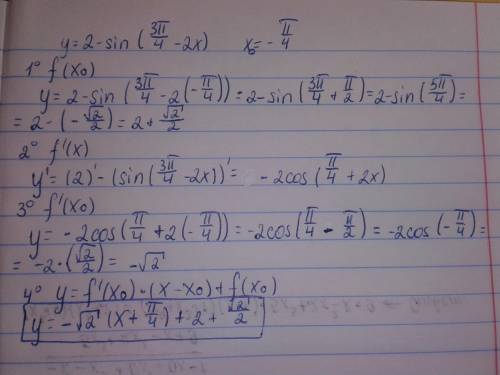 y = 2 - sin (3π/4 - 2x)    x₀ = - π/4
1° f(x₀)
y = 2 - sin (3π/4 - 2(-π/4)) = 2 - sin (3π/4 + π/2) = 2 - sin (5π/4) =
= 2 - (-√2/2) = 2 + √2/2
2° f'(x)
y' = (2)' - (sin(3π/4 - 2x))' = - 2cos(π/4 + 2x)
3° f'(x₀)
y = - 2cos(π/4 + 2(-π/4)) = -2cos(π/4 - π/2) = -2cos(-π/4) =
= -2·(√2/2) = -√2
4° y = f'(x₀)·(x - x₀) + f(x₀)
y = -√2 (x + π/4) + 2 + √2/2